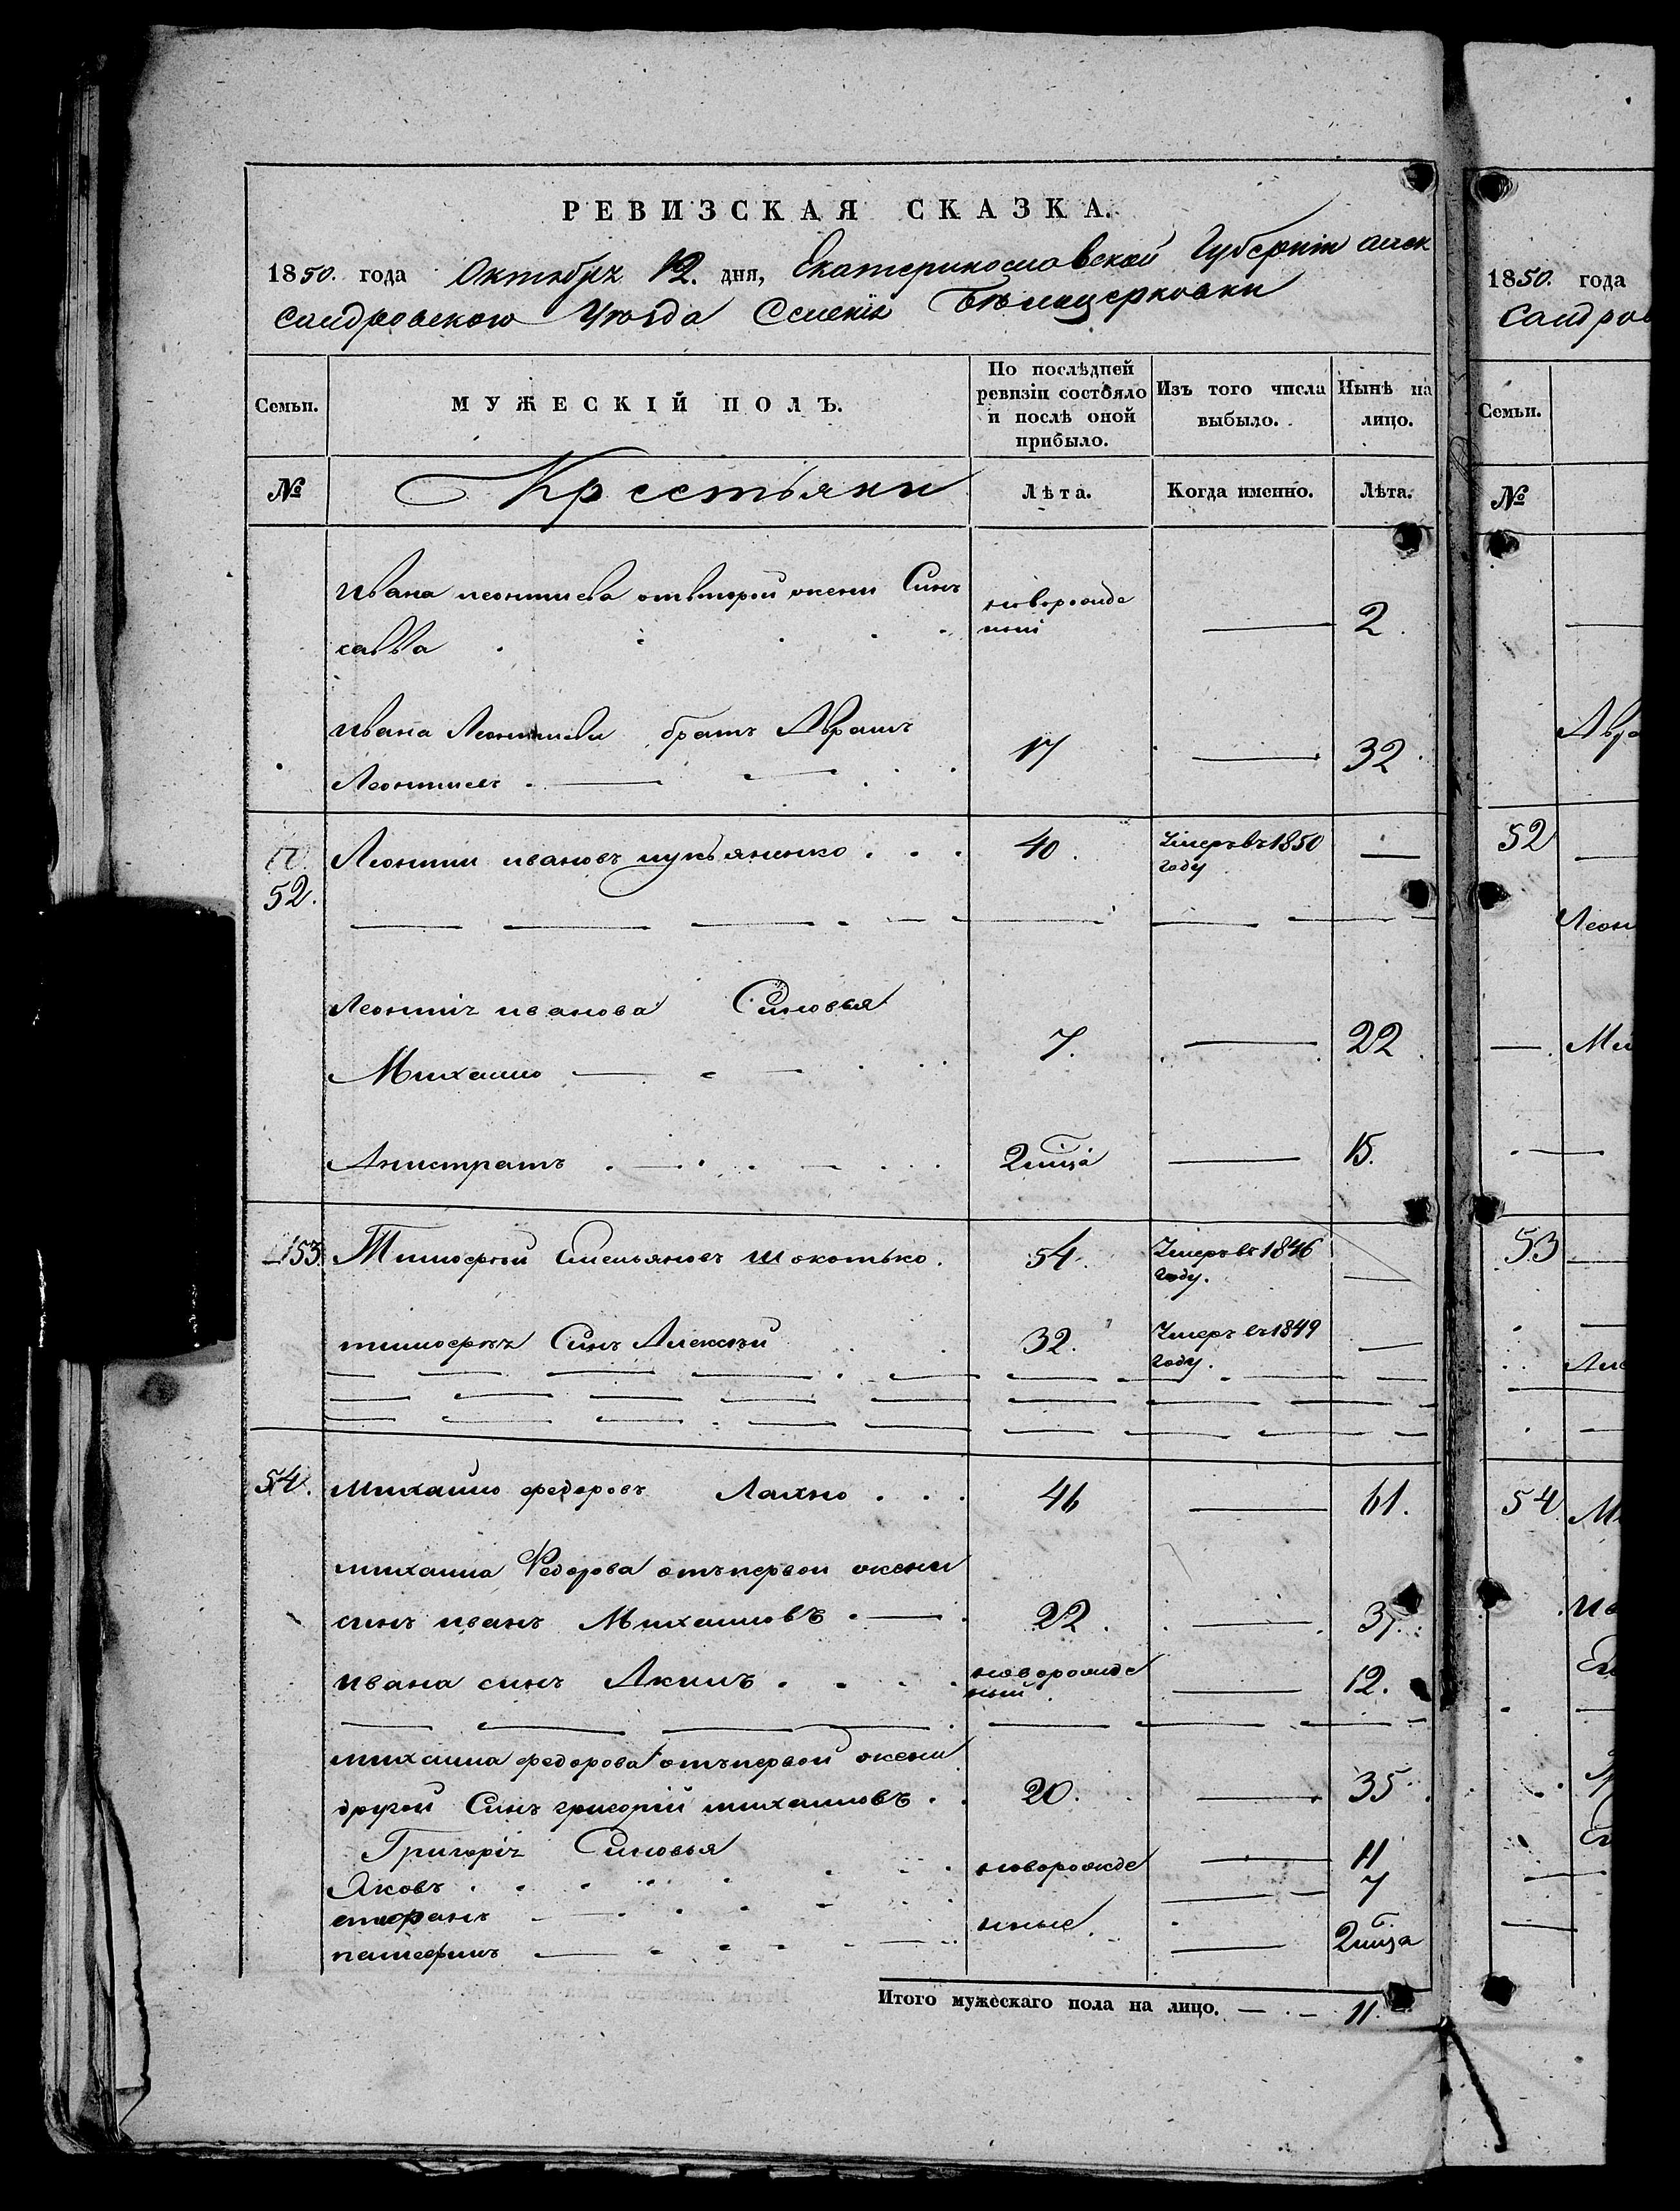 РЕВИЗСКАЯ СКАЗКА.
1850. года Октября 12. дня, Екатеринославской Губерніи Алек
сандровского Уѣзда Селенія Бѣлоцерковки
Семьи. МУЖЕСКІЙ ПОЛЪ. По послѣдней ревизіи состояло и послѣ оной прибыло. Изъ того числа выбыло. Нынѣ на лицо.
№ Крестьяни Лѣта. Когда именно. Лѣта.
Ивана леонтиева отвторой жени Синъ новорожде
савва ний — 2
Ивана Леонтиева братъ Аврамъ
Леонтиев 17 — 32
52. Леонтий ивановъ лукьяненко 40. Умеръ въ 1850 году —
Леонтія иванова Синовья
Михайло 7. — 22
Анистратъ 2 мця — 15.
53 Тимофей Емельяновъ шокотько. 54. Умеръ въ 1846 году. —
тимофея Синъ Алексѣй 32. Умеръ въ 1849 году. —
54. михайло федоровъ Лахно 46 — 61.
михаила Федорова отъпервой жени
синъ иванъ Михаиловъ 22. — 37.
ивана синъ Акимъ новорожде ный — 12.
михаила федорова отъпервой жени
другой Синъ григорій михаиловъ 20. — 35
Григорія Синовья
Яковъ новорожде — 11
стефанъ — 7
нные.
памфилъ — 2 мця
Итого мужескаго пола на лицо. — 11.
1850. года
Сандров
Семьи.
№
Авра
52
Леон
Ми
53
Але
54 М
Ив